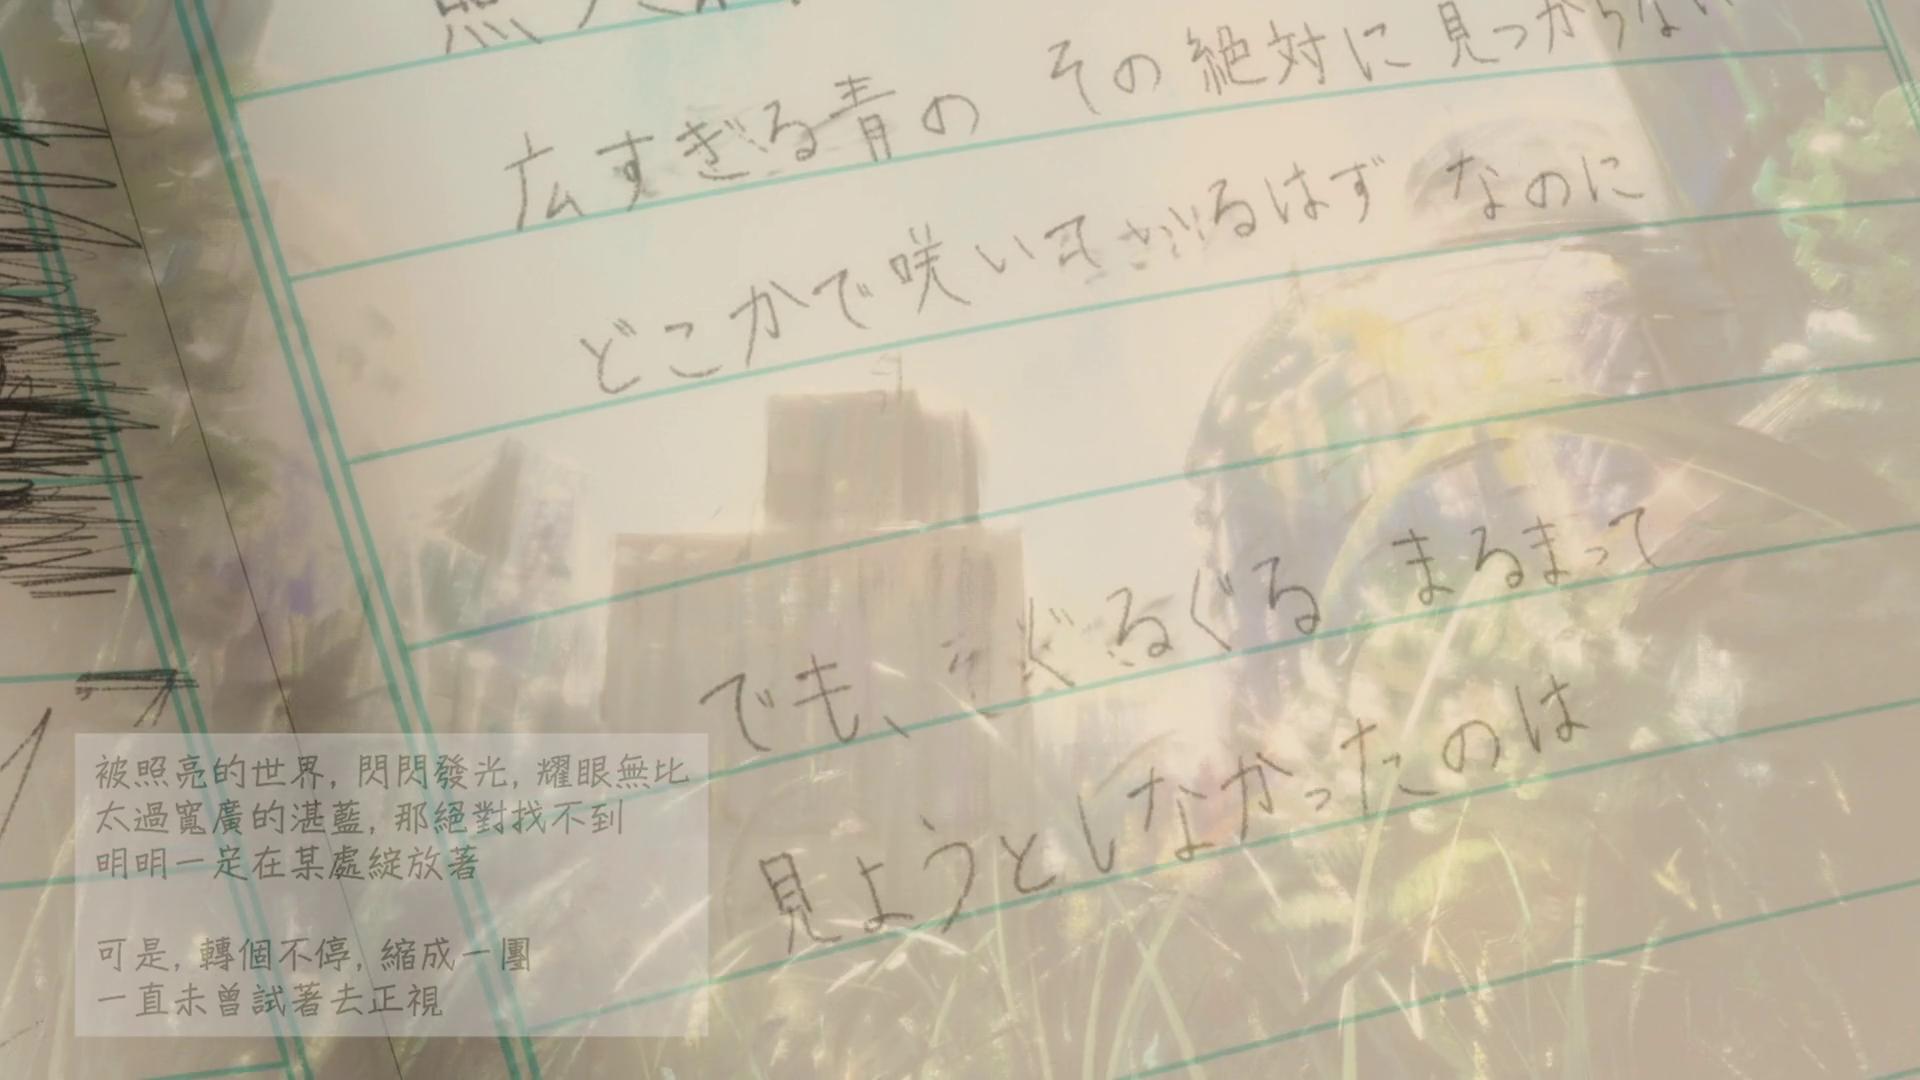 広すぎる青の その絶対に見つからない
どこかで咲いてるはず なのに
でも、ぐるぐる まるまって
見ようとしなかったのは
被照亮的世界, 閃閃發光, 耀眼無比
太過寬廣的湛藍, 那絕對找不到
明明一定在某處綻放著
可是, 轉個不停, 縮成一團
一直未曾試著去正視